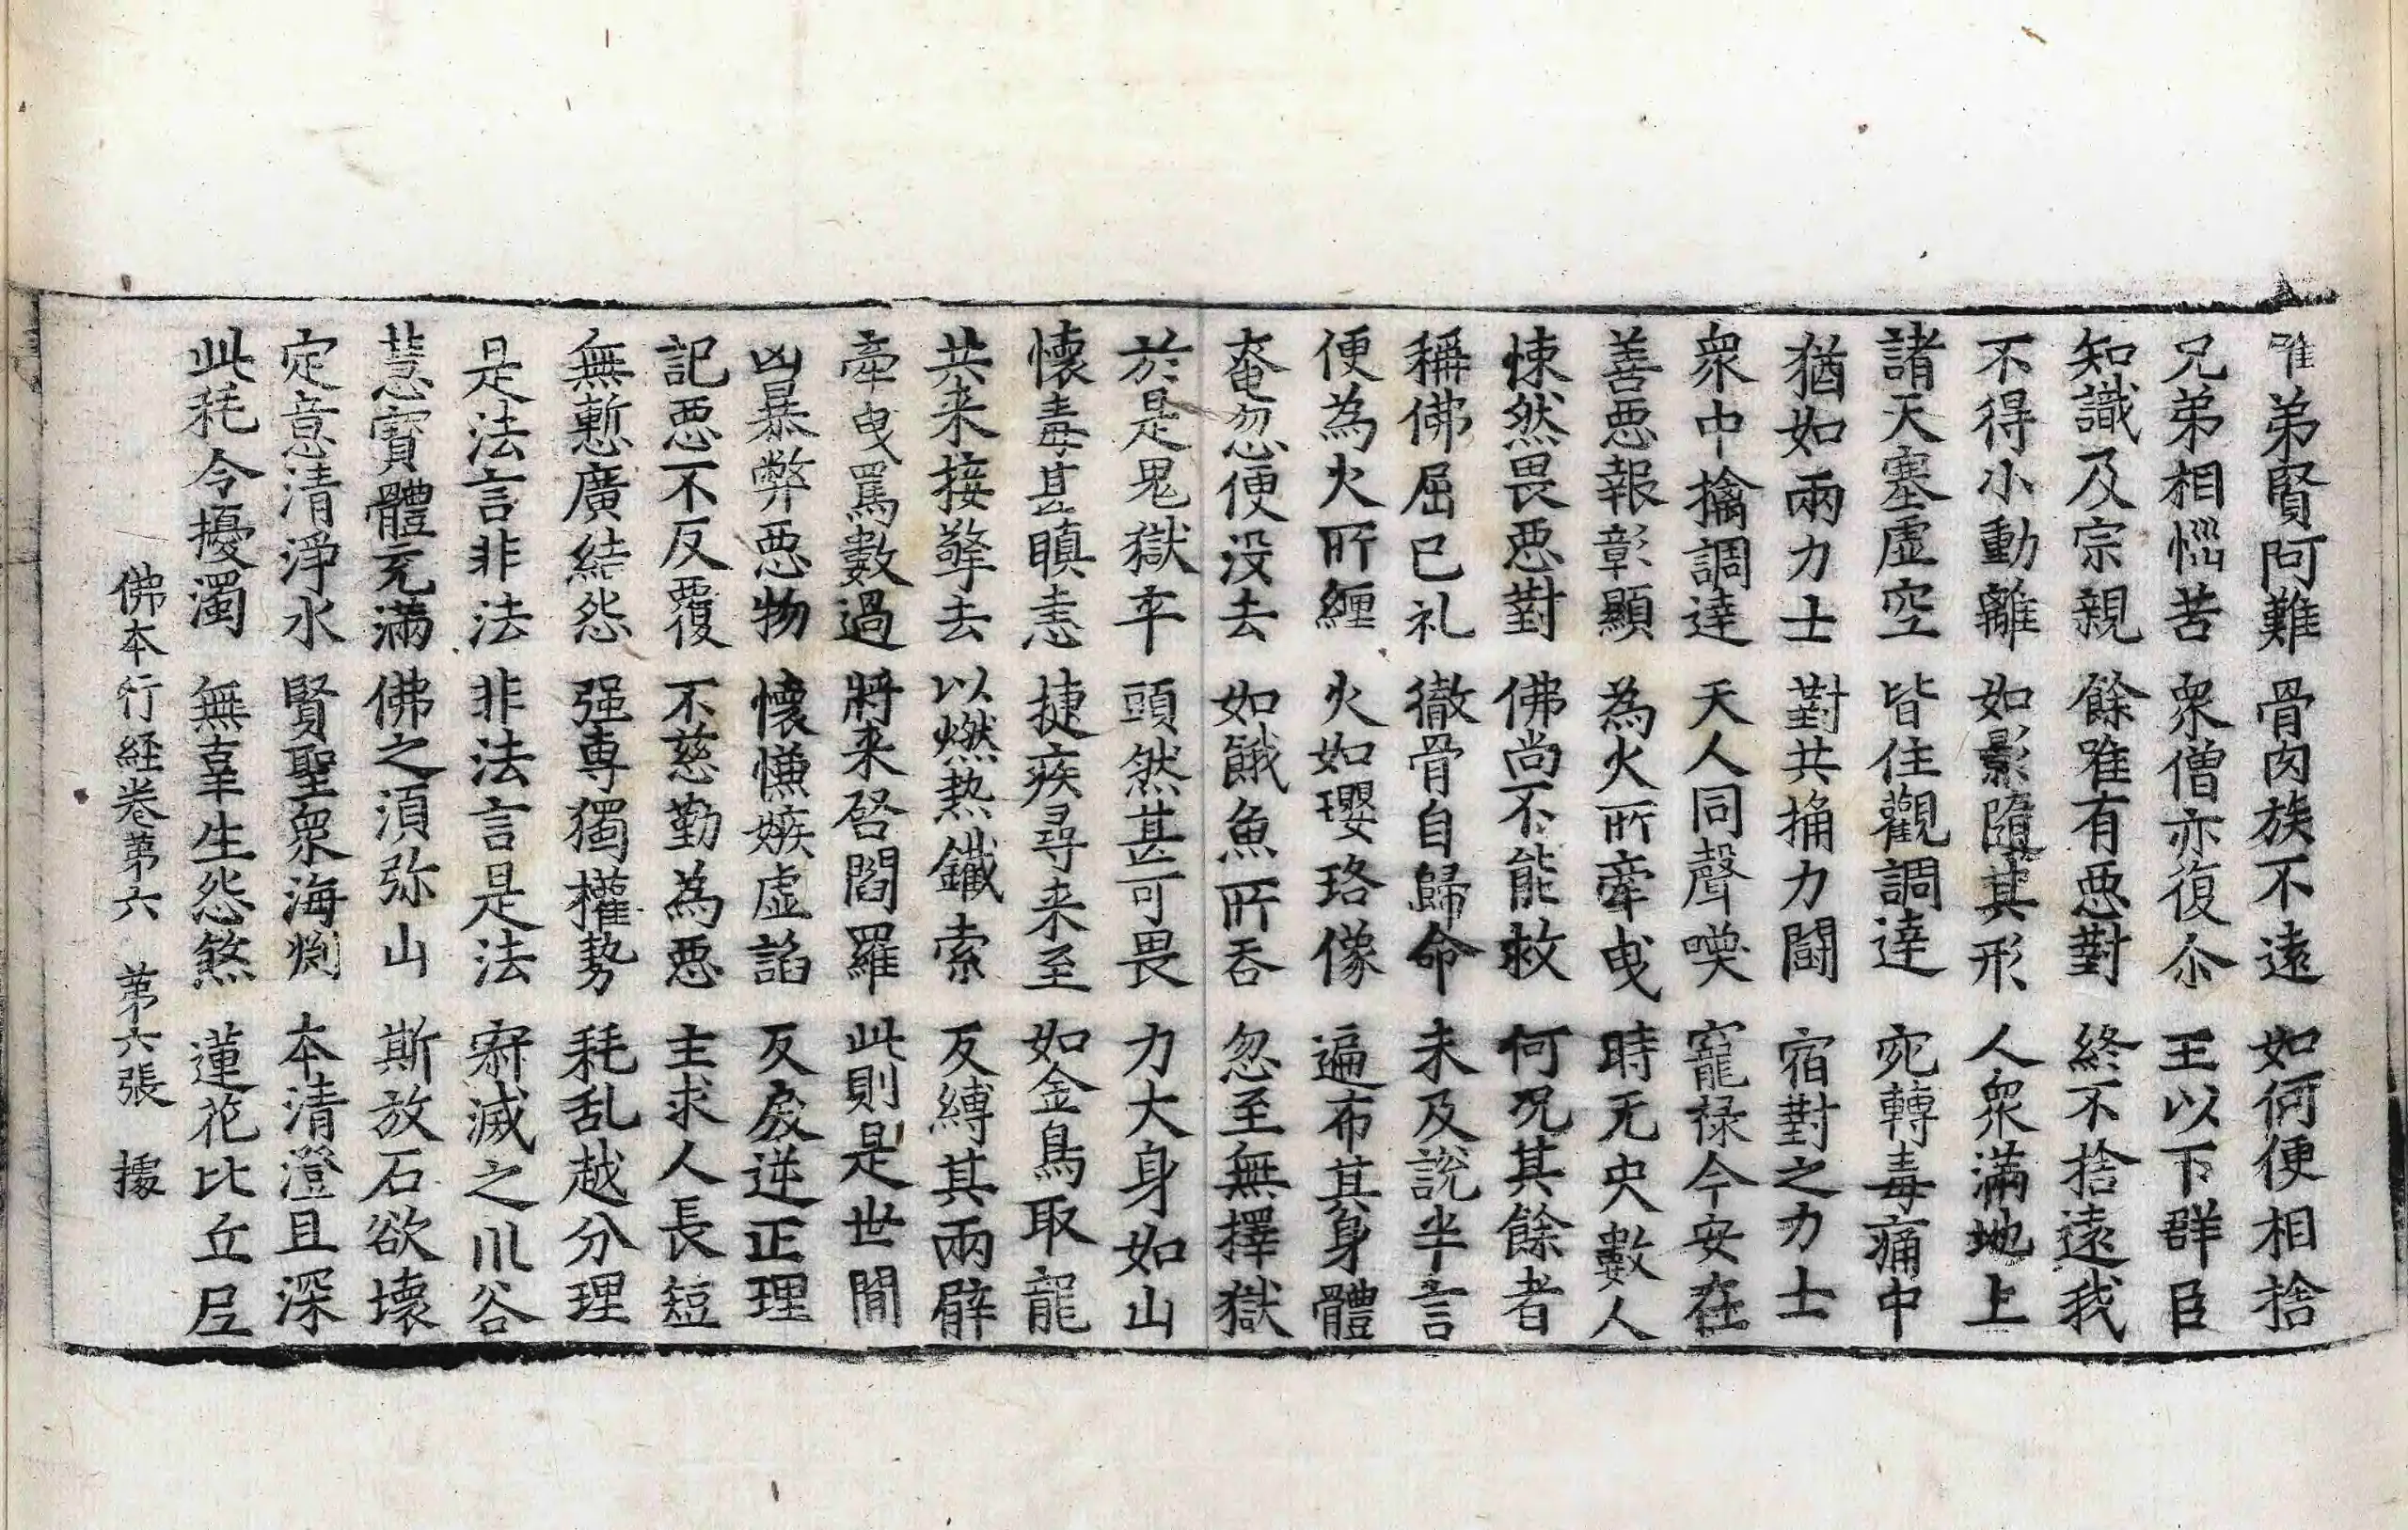 唯弟賢阿難 骨肉族不遠 如何便相捨
兄弟相惱苦 衆僧亦復尒 王以下群臣
知識及宗親 餘唯有惡對 終不捨遠我
不得小動離 如影隨其形 人衆滿地上
諸天塞虛空 皆住觀調達 宛轉毒痛中
猶如兩力士 對共捔力鬪 宿對之力士
衆中擒調達 天人同聲嘆 寵禄今安在
善惡報彰顯 為火所牽曳 時无央數人
悚然畏惡對 佛尚不能救 何況其餘者
稱佛屈已礼 徹骨自歸命 未及說半言
便為火所纏 火如瓔珞像 遍布其身體
奄忽便没去 如餓魚所吞 忽至無擇獄
於是鬼獄卒 頭然甚可畏 力大身如山
懷毒甚瞋恚 捷疾尋来至 如金鳥取龍
共来接擎去 以燃熱鐵索 反縛其兩臂
牽曳罵數過 將来啓閻羅 此則是世間
凶暴弊惡物 懷慊嫉虛諂 反戾逆正理
記惡不反覆 不慈勤為惡 主求人長短
無慙廣結怨 强専獨權勢 耗乱越分理
是法言非法 非法言是法 寂滅之川谷
慧寳體充滿 佛之湏弥山 斯放石欲壞
定意清淨水 賢聖衆海渕 本清澄且深
此秏令擾濁 無辜生怨煞 蓮花比丘尼
佛本行経卷第六 第六張 據